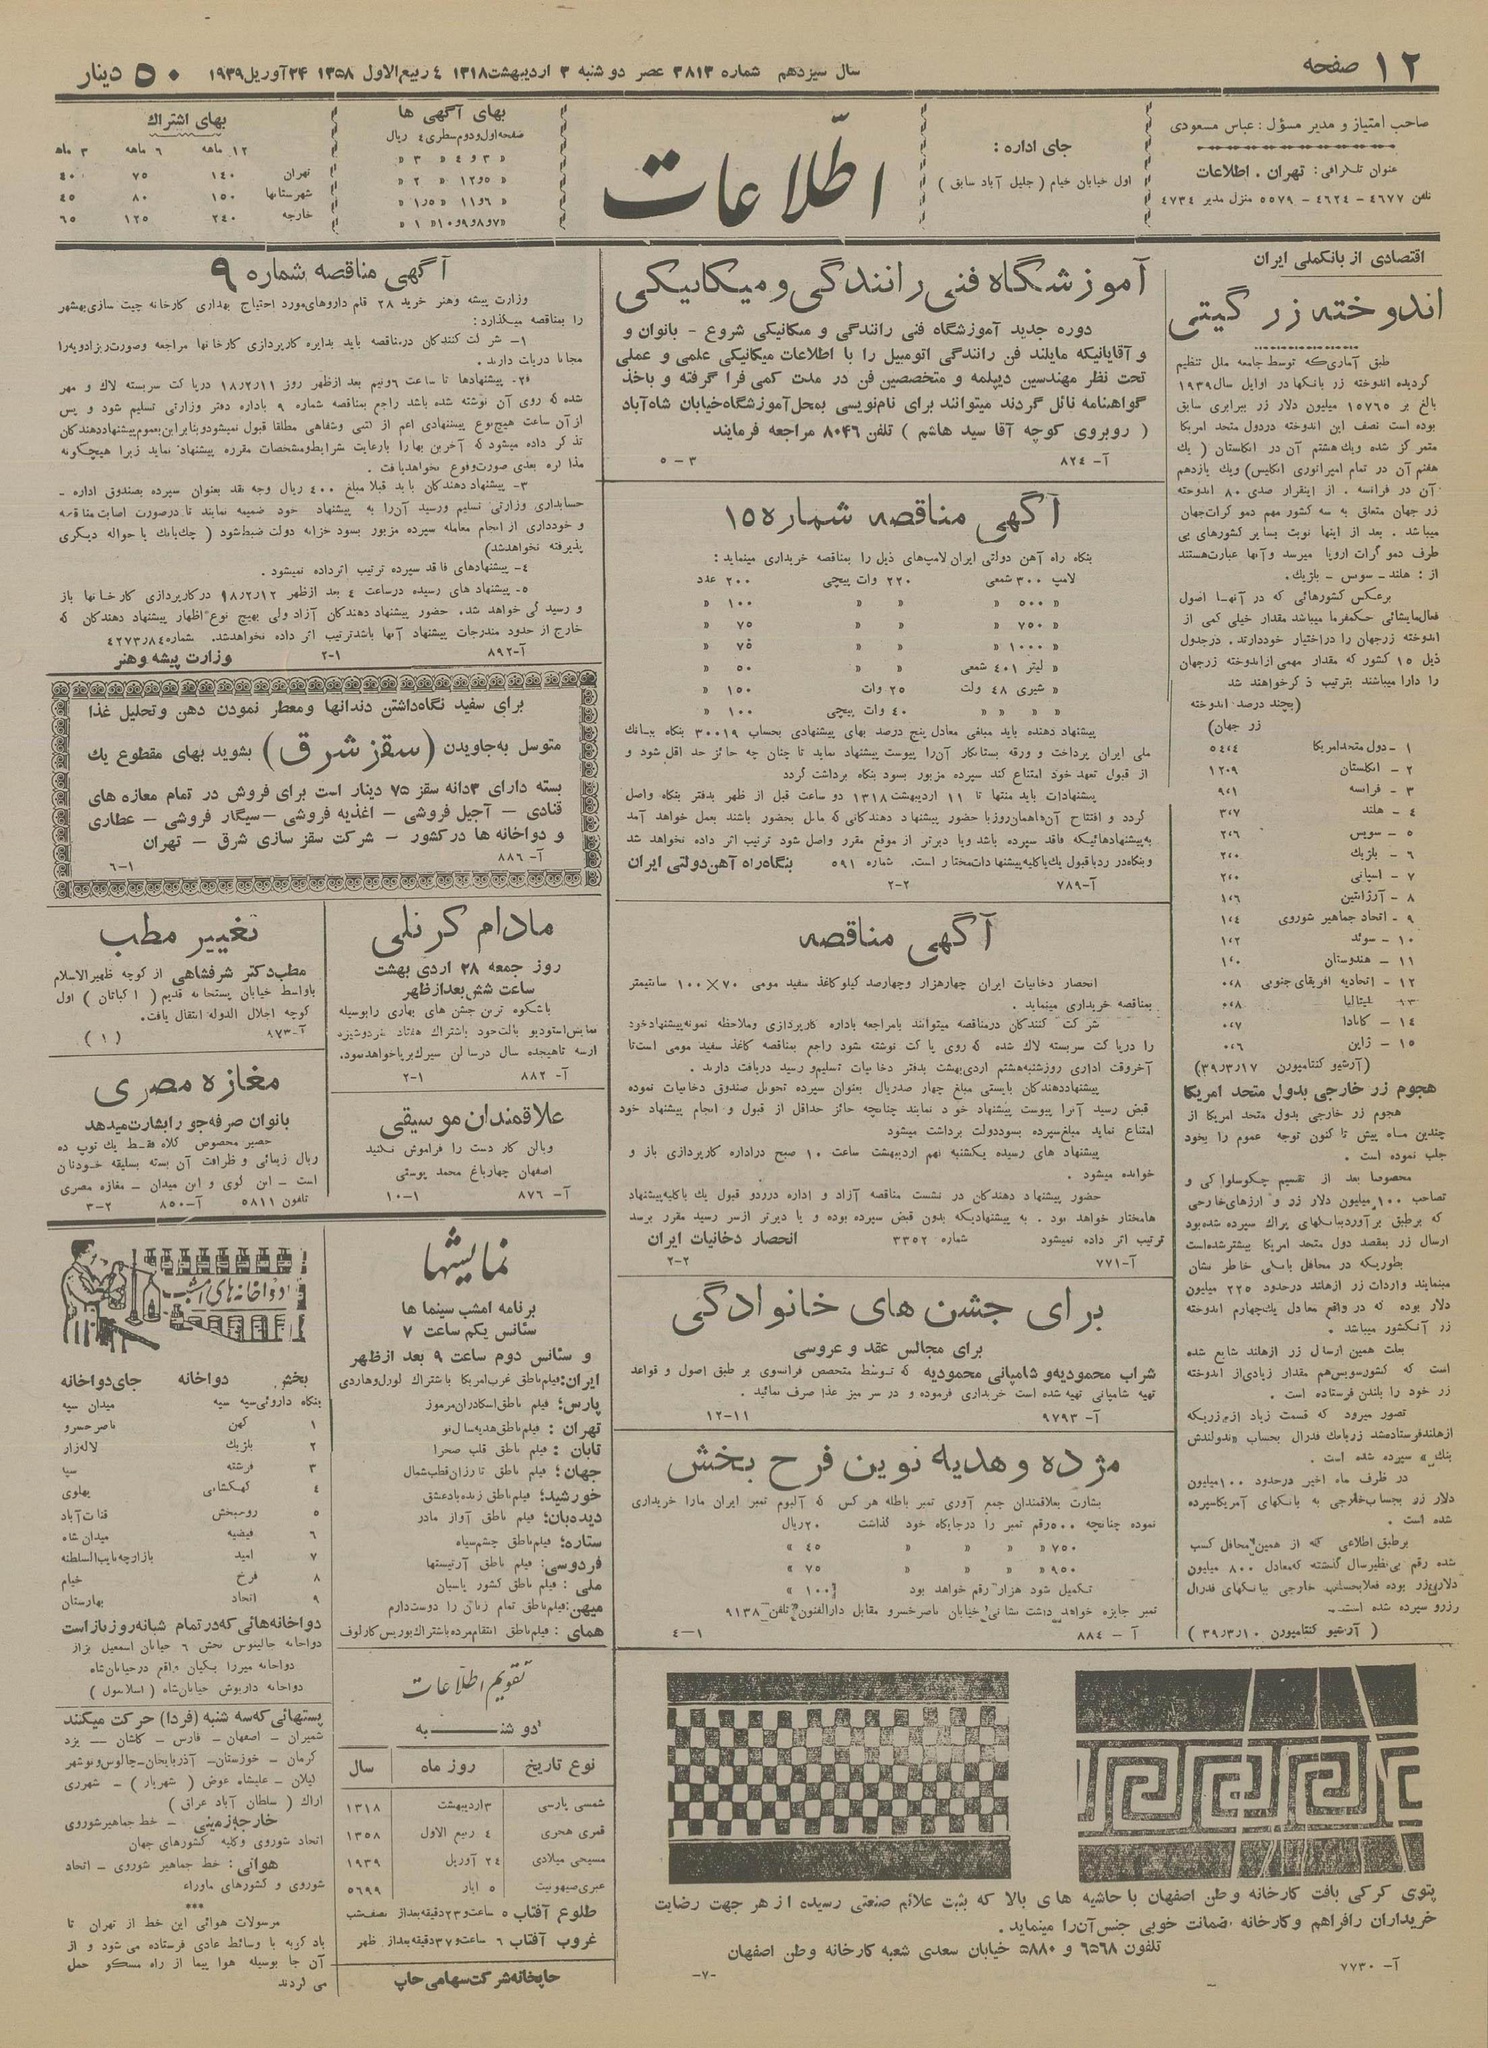 ۱۲ صفحه
سال سیزدهم شماره ۳۸۱۳ عصر دو شنبه ۳ اردیبهشت ۱۳۱۸ ٤ ربیع الاول ۱۳۵۸ ۲۴ آوریل ۱۹۳۹
۵۰ دینار
صاحب امتیاز و مدیر مسؤل : عباس مسعودی
عنوان تلگرافی : تهران . اطلاعات
تلفن ٤٦٧٧ - ٤٦٢٤ - ٥٥٧٩ منزل مدیر ٤٧٣٤
جای اداره :
اول خیابان خیام ( جلیل آباد سابق )
اطلاعات
بهای آگهی ها
صفحه اول و دوم سطری ٤ ریال
« ۳ و ٤ « ۳ «
« ۵ و ۱۲ « ۲ «
« ۶ و ۱۱ « ۱٫۵ «
« ۷ و ۸ و ۹ و ۱۰ « ۱ «
بهای اشتراك
۱۲ ماهه ۶ ماهه ۳ ماهه
تهران ۱٤۰ ۷۵ ٤۰
شهرستانها ۱۵۰ ۸۰ ٤۵
خارجه ۲٤۰ ۱۲۵ ۶۵
اقتصادی از بانکملی ایران
اندوخته زر گیتی
طبق آماری که توسط جامعه ملل تنظیم
گردیده اندوخته زر بانکها در اوایل سال ۱۹۳۹
بالغ بر ۱۵۷۶۵ میلیون دلار زر ببرابری سابق
بوده است نصف این اندوخته در دول متحد امریکا
متمرکز شده و یك هشتم آن در انگلستان ( یك
هفتم آن در تمام امپراتوری انگلیس) ویك یازدهم
آن در فرانسه . از اینقرار صدی ۸۰ اندوخته
زر جهان متعلق به سه کشور مهم دموکرات جهان
میباشد . بعد از اینها نوبت بسایر کشورهای بی
طرف دموکرات اروپا میرسد و آنها عبارت هستند
از : هلند - سوس - بلژیك.
برعکس کشورهائی که در آنها اصول
فعالمایشائی حکمفرما میباشد مقدار خیلی کمی از
اندوخته زرجهان را دراختیار خود دارند . درجدول
ذیل ۱۵ کشور که مقدار مهمی از اندوخته زرجهان
را دارا میباشند بترتیب ذکر خواهند شد
(بچند درصد اندوخته
زر جهان)
۱ - دول متحد امریکا ۵٤،٤
۲ - انگلستان ۱۲،۹
۳ - فرانسه ۹،۱
٤ - هلند ۳،۷
۵ - سویس ۲،۶
۶ - بلژیك ۲،۰
۷ - اسپانی ۲،۰
۸ - آرژانتین ۱،۶
۹ - اتحاد جماهیر شوروی ۱،٤
۱۰ - سوئد ۱،۲
۱۱ - هندوستان ۱،۰
۱۲ - اتحادیه افریقای جنوبی ۰،۸
۱٤ - کانادا ۰،۷
۱۵ - ژاپن ۰،۶
(آرشیو کنتامپورن ۳۹٫۳٫۱۷)
هجوم زر خارجی بدول متحد امریکا
هجوم زر خارجی بدول متحد امریکا از
چندین ماه پیش تا کنون توجه عموم را بخود
جلب نموده است .
مخصوصاً بعد از تقسیم چکوسلواکی و
تصاحب ۱۰۰ میلیون دلار زر و ارزهای خارجی
که برطبق برآورد بانکهای پراك سپرده شده بود
ارسال زر بمقصد دول متحد امریکا بیشتر شده است
بطوریکه در محافل بانکی خاطر نشان
مینمایند واردات زر از هلند در حدود ۲۲۵ میلیون
دلار بوده که در واقع معادل یك چهارم اندوخته
زر آنکشور میباشد .
بعلت همین ارسال زر از هلند شایع شده
است که کشور سویس هم مقدار زیادی از اندوخته
زر خود را بلندن فرستاده است .
تصور میرود که قسمت زیاد از زریکه
از هلند فرستاده شد زر بانك فدرال بحساب «ندرلندش
بنك» سپرده شده است .
در ظرف ماه اخیر در حدود ۱۰۰ میلیون
دلار زر بحساب خارجی به بانکهای آمریکا سپرده
شده است .
برطبق اطلاعی که از همین محافل کسب
شده رقم بی نظیر سال گذشته که معادل ۸۰۰ میلیون
دلار زر بوده فعلا بحساب خارجی ببانکهای فدرال
رزرو سپرده شده است .
( آرشیو کنتامپورن ۳۹٫۳٫۱۰ )
آموزشگاه فنی رانندگی و میکانیکی
دوره جدید آموزشگاه فنی رانندگی و میکانیکی شروع - بانوان و
آقایانیکه مایلند فن رانندگی اتومبیل را با اطلاعات میکانیکی علمی و عملی
تحت نظر مهندسین دیپلمه و متخصصین فن در مدت کمی فرا گرفته و باخذ
گواهینامه نائل گردند میتوانند برای نام نویسی بمحل آموزشگاه خیابان شاه آباد
( روبروی کوچه آقا سید هاشم ) تلفن ۸۰۴۶ مراجعه فرمایند
آ- ۸۲٤ ۳ - ۵
آگهی مناقصه شماره ۱۵
بنگاه راه آهن دولتی ایران لامپ های ذیل را بمناقصه خریداری مینماید :
لامپ ۳۰۰ شمعی ۲۲۰ وات پیچی ۲۰۰ عدد
« ۵۰۰ « « « ۱۰۰ «
« ۷۵۰ « « « ۷۵ «
« ۱۰۰۰ « « « ۷۵ «
« لیتر ٤۰۱ شمعی « « ۵۰ «
« شیری ٤۸ ولت ۲۵ وات ۱۵۰ «
« « « « ٤۰ وات پیچی ۱۰۰ «
پیشنهاد دهنده باید مبلغی معادل پنج درصد بهای پیشنهادی بحساب ۳۰۰۱۹ بنگاه ببانك
ملی ایران پرداخت و ورقه بستانکار آن را پیوست پیشنهاد نماید تا چنان چه حائز حد اقل شود و
از قبول تعهد خود امتناع کند سپرده مزبور بسود بنگاه برداشت گردد
پیشنهادات باید منتها تا ۱۱ اردیبهشت ۱۳۱۸ دو ساعت قبل از ظهر بدفتر بنگاه واصل
گردد و افتتاح آن در همان روز با حضور پیشنهاد دهندگانی که مایل بحضور باشند بعمل خواهد آمد
به پیشنهادهائیکه فاقد سپرده باشد و یا دیرتر از موقع مقرر واصل شود ترتیب اثر داده نخواهد شد
و بنگاه در رد یا قبول یك یا کلیه پیشنهادات مختار است. شماره ۵۹۱ بنگاه راه آهن دولتی ایران
آ-۷۸۹ ۲-۲
آگهی مناقصه
انحصار دخانیات ایران چهارهزار و چهارصد کیلو کاغذ سفید مومی ۷۰×۱۰۰ سانتیمتر
بمناقصه خریداری مینماید .
شرکت کنندگان در مناقصه میتوانند بامراجعه باداره کارپردازی وملاحظه نمونه پیشنهاد خود
را در پاکت سربسته لاك شده که روی پاکت نوشته شود راجع بمناقصه کاغذ سفید مومی است تا
آخر وقت اداری روز شنبه هشتم اردی بهشت بدفتر دخانیات تسلیم و رسید دریافت دارند .
پیشنهاد دهندگان بایستی مبلغ چهار صد ریال بعنوان سپرده تحویل صندوق دخانیات نموده
قبض رسید آنرا پیوست پیشنهاد خود نمایند چنانچه حائز حداقل از قبول و انجام پیشنهاد خود
امتناع نماید مبلغ سپرده بسود دولت برداشت میشود
پیشنهاد های رسیده یکشنبه نهم اردیبهشت ساعت ۱۰ صبح در اداره کارپردازی باز و
خوانده میشود .
حضور پیشنهاد دهندگان در نشست مناقصه آزاد و اداره در رد و قبول یك یا کلیه پیشنهاد
ها مختار خواهد بود . به پیشنهادیکه بدون قبض سپرده بوده و یا دیرتر از سر رسید مقرر برسد
ترتیب اثر داده نمیشود شماره ۳۳۵۲ انحصار دخانیات ایران
آ-۷۷۱ ۲-۲
برای جشن های خانوادگی
برای مجالس عقد و عروسی
شراب محمودیه و شامپانی محمودیه که توسط متخصص فرانسوی بر طبق اصول و قواعد
تهیه شامپانی تهیه شده است خریداری فرموده و در سر میز غذا صرف نمائید .
آ- ۹۷۹۳ ۱۱-۱۲
مژده و هدیه نوین فرح بخش
بشارت بعلاقمندان جمع آوری تمبر باطله هر کس که آلبوم تمبر ایران مارا خریداری
نموده چنانچه ۵۰۰ رقم تمبر را در جایگاه خود گذاشت ۲۰ ریال
« ۷۵۰ « « « « ٤۵ «
« ۹۵۰ « « « « ۷۵ «
تکمیل شود هزار رقم خواهد بود ۱۰۰ «
تمبر جایزه خواهد داشت نشانی خیابان ناصرخسرو مقابل دارالفنون تلفن ۹۱۳۸
آ - ۸۸٤ ۱-٤
پتوی کرکی بافت کارخانه وطن اصفهان با حاشیه های بالا که بثبت علائم صنعتی رسیده از هر جهت رضایت
خریداران را فراهم و کارخانه ضمانت خوبی جنس آن را مینماید .
تلفون ۶۵۶۸ و ۵۸۸۰ خیابان سعدی شعبه کارخانه وطن اصفهان
آ- ۷۷۳۰ -۷-
آگهی مناقصه شماره ۹
وزارت پیشه و هنر خرید ۲۸ قلم داروهای مورد احتیاج بهداری کارخانه چیت سازی بهشهر
را بمناقصه میگذارد :
۱- شرکت کنندگان در مناقصه باید بدایره کارپردازی کارخانها مراجعه وصورت ریز ادویه را
مجاناً دریافت دارند .
۲- پیشنهادها تا ساعت ۶ و نیم بعد از ظهر روز ۱۸٫۲٫۱۱ در پاکت سربسته لاك و مهر
شده که روی آن نوشته شده باشد راجع بمناقصه شماره ۹ باداره دفتر وزارتی تسلیم شود و پس
از آن ساعت هیچ نوع پیشنهادی اعم از کتبی وشفاهی مطلقا قبول نمیشود و بنابراین بعموم پیشنهاد دهندگان
تذکر داده میشود که آخرین بها را با رعایت شرایط و مشخصات مقرره پیشنهاد نماید زیرا هیچگونه
مذاکره بعدی صورت وقوع نخواهد یافت .
۳- پیشنهاد دهندگان باید قبلا مبلغ ٤۰۰ ریال وجه نقد بعنوان سپرده بصندوق اداره -
حسابداری وزارتی تسلیم و رسید آن را به پیشنهاد خود ضمیمه نمایند تا در صورت اصابت مناقصه
و خودداری از انجام معامله سپرده مزبور بسود خزانه دولت ضبط شود ( چك بانك یا حواله دیگری
پذیرفته نخواهد شد)
٤- پیشنهادهای فاقد سپرده ترتیب اثر داده نمیشود .
۵- پیشنهاد های رسیده در ساعت ٤ بعد از ظهر ۱۸٫۲٫۱۲ در کارپردازی کارخانها باز
و رسیدگی خواهد شد. حضور پیشنهاد دهندگان آزاد ولی بهیچ نوع اظهار پیشنهاد دهندگان که
خارج از حدود مندرجات پیشنهاد آنها باشد ترتیب اثر داده نخواهد شد. شماره ٤۲۷۳٫۸٤
آ-۸۹۲ ۱-۲ وزارت پیشه و هنر
برای سفید نگاه داشتن دندانها و معطر نمودن دهن و تحلیل غذا
متوسل به جاویدن (سقز شرق) بشوید بهای مقطوع یك
بسته دارای ۳ دانه سقز ۷۵ دینار است برای فروش در تمام مغازه های
قنادی - آجیل فروشی - اغذیه فروشی - سیگار فروشی - عطاری
و دواخانه ها در کشور - شرکت سقز سازی شرق - تهران
آ- ۸۸۶ ۱-۶
مادام کرنلی
روز جمعه ۲۸ اردی بهشت
ساعت شش بعد از ظهر
باشکوه ترین جشن های بهاری را بوسیله
نمایش استودیو بالت خود باشتراك هفتاد نفر دوشیزه
از سه تا هیجده سال در سالن سیرك برپا خواهد نمود.
آ- ۸۸۲ ۱-۲
علاقمندان موسیقی
ویالن کار دست را فراموش نکنید
اصفهان چهارباغ محمد پوستی
آ- ۸۷۶ ۱-۱۰
تغییر مطب
مطب دکتر شرفشاهی از کوچه ظهیرالاسلام
باواسط خیابان پستخانه قدیم ( اکباتان ) اول
کوچه اجلال الدوله انتقال یافت.
آ-۸۷۳ ( ۱ )
مغازه مصری
بانوان صرفه جو را بشارت میدهد
حصیر مخصوص کلاه فقط یك توپ ده
ریال زیبائی و ظرافت آن بسته بسلیقه خودتان
است - این گوی و این میدان - مغازه مصری
تلفون ۵۸۱۱ آ-۸۵۰ ۲-۳
نمایشها
برنامه امشب سینما ها
سئانس یکم ساعت ۷
و سئانس دوم ساعت ۹ بعد از ظهر
ایران: فیلم ناطق غرب امریکا باشتراك لورل و هاردی
پارس: فیلم ناطق اسکادران مرموز
تهران : فیلم ناطق هدیه سال نو
تابان : فیلم ناطق قلب صحرا
جهان: فیلم ناطق تارزان قطب شمال
خورشید: فیلم ناطق زنده باد عشق
دیده بان: فیلم ناطق آواز مادر
ستاره: فیلم ناطق چشم سیاه
فردوسی: فیلم ناطق آرتیستها
ملی : فیلم ناطق کشور پاسبان
میهن: فیلم ناطق تمام زنان را دوست دارم
همای : فیلم ناطق انتقام مرده باشتراك بوریس کارلوف
تقویم اطلاعات
دو شنبه
نوع تاریخ روز ماه سال
شمسی پارسی ۳ اردیبهشت ۱۳۱۸
قمری هجری ٤ ربیع الاول ۱۳۵۸
مسیحی میلادی ۲٤ آوریل ۱۹۳۹
عبری صیهونیت ۵ ایار ۵۶۹۹
طلوع آفتاب ۵ ساعت و ۲۳ دقیقه بعد از نصف شب
غروب آفتاب ۶ ساعت و ۳۷ دقیقه بعد از ظهر
چاپخانه شرکت سهامی چاپ
دواخانه های شب
بخش دواخانه جای دواخانه
بنگاه داروئی سپه سپه میدان سپه
۱ کهن ناصر خسرو
۲ بلژیك لاله زار
۳ فرشته سپا
٤ کهکشانی پهلوی
۵ روحبخش قنات آباد
۶ فیضیه میدان شاه
۷ امید بازارچه نایب السلطنه
۸ فرخ خیام
۹ اتحاد بهارستان
دواخانه هائی که در تمام شبانه روز باز است
دواخانه جالینوس بخش ۶ خیابان اسمعیل بزاز
دواخانه میرزا یکیان واقع در خیابان شاه
دواخانه داریوش خیابان شاه ( اسلامبول )
پستهائی که سه شنبه (فردا) حرکت میکند
شمیران - اصفهان - فارس - کاشان - یزد
کرمان - خوزستان - آذربایجان - چالوس و نوشهر
گیلان - علیشاه عوض ( شهریار ) - شهرری
اراك ( سلطان آباد عراق )
خارجه زمینی - خط جماهیر شوروی
اتحاد شوروی و کلیه کشورهای جهان
هوائی : خط جماهیر شوروی - اتحاد
شوروی و کشورهای ماوراء
***
مرسولات هوائی این خط از تهران تا
بادکوبه با وسائط عادی فرستاده می شود و از
آن جا بوسیله هوا پیما از راه مسکو حمل
می گردند